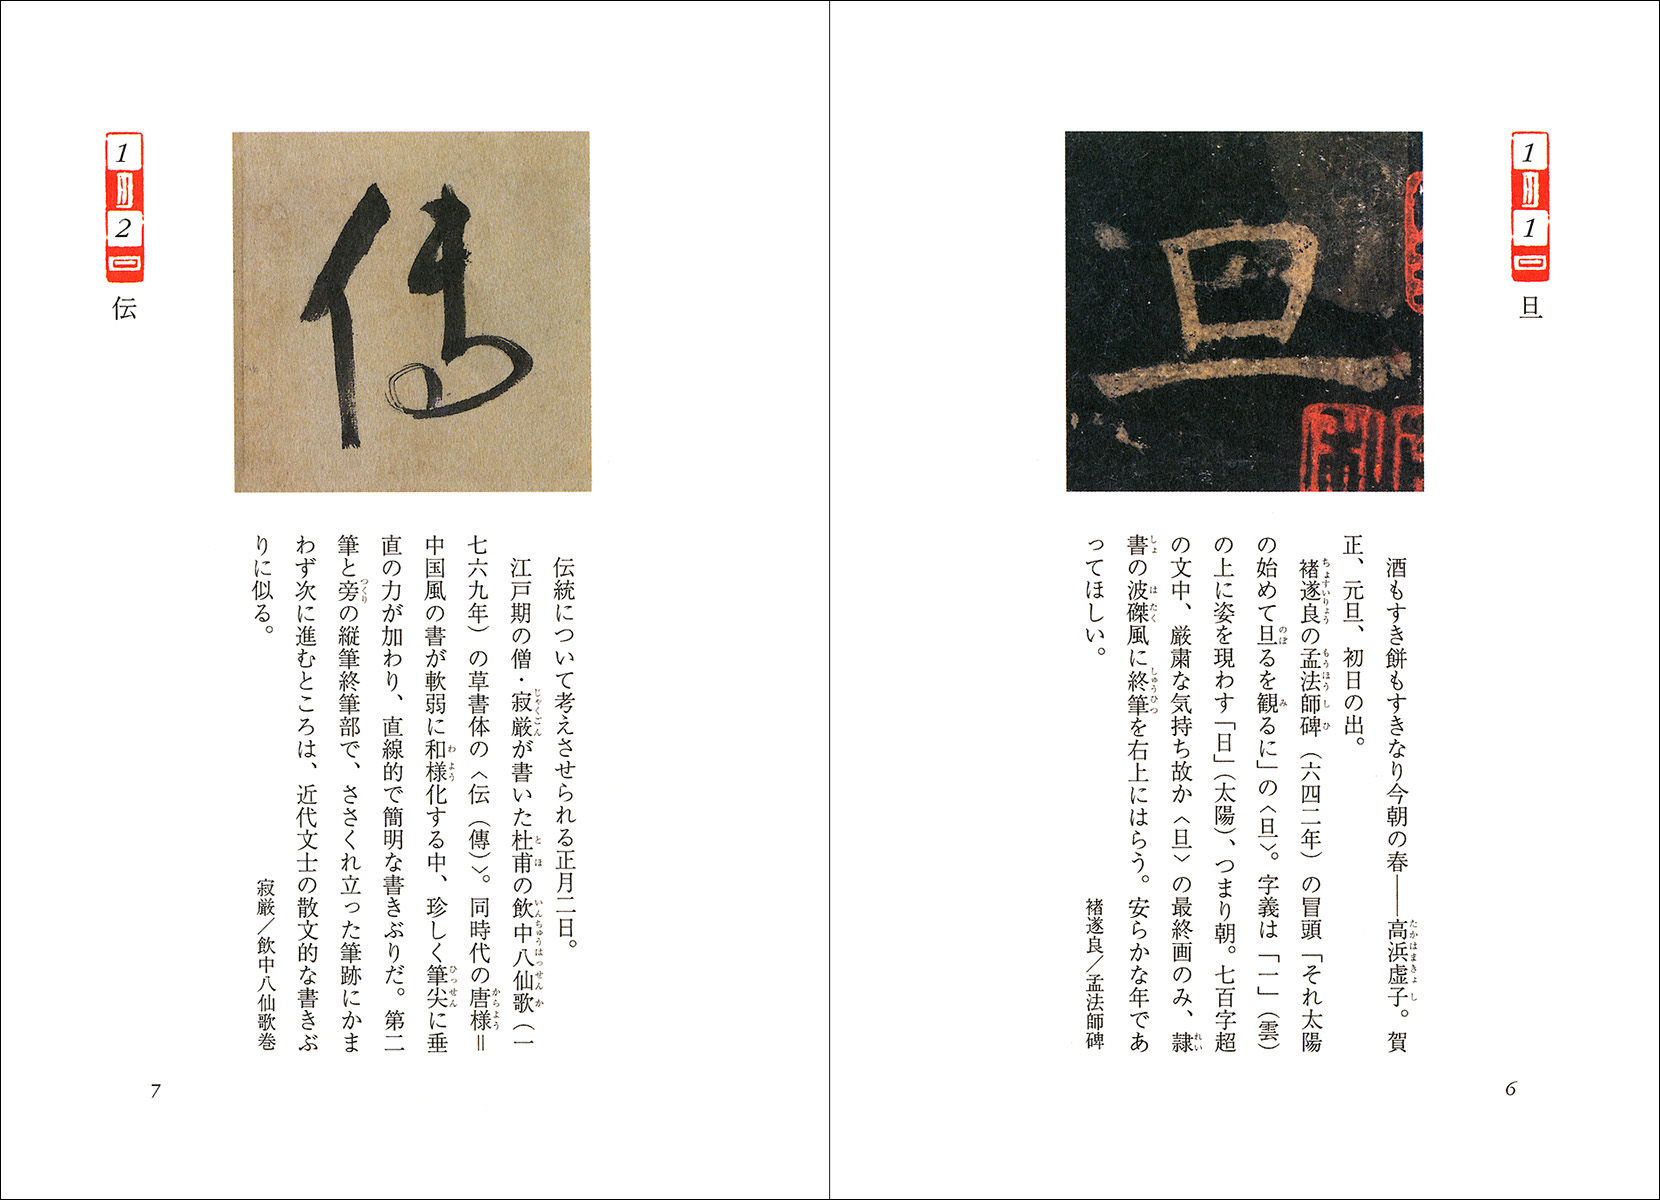 1月1日
旦
旦
酒もすき餅もすきなり今朝の春——高浜虚子。賀
正、元旦、初日の出。
褚遂良の孟法師碑（六四二年）の冒頭「それ太陽
の始めて旦るを観るに」の〈旦〉。字義は「一」（雲）
の上に姿を現わす「日」（太陽）、つまり朝。七百字超
の文中、厳粛な気持ち故か〈旦〉の最終画のみ、隷
書の波磔風に終筆を右上にはらう。安らかな年であ
ってほしい。
褚遂良／孟法師碑
6
1月2日
伝
傳
伝統について考えさせられる正月二日。
江戸期の僧・寂厳が書いた杜甫の飲中八仙歌（一
七六九年）の草書体の〈伝（傳）〉。同時代の唐様＝
中国風の書が軟弱に和様化する中、珍しく筆尖に垂
直の力が加わり、直線的で簡明な書きぶりだ。第二
筆と旁の縦筆終筆部で、ささくれ立った筆跡にかま
わず次に進むところは、近代文士の散文的な書きぶ
りに似る。
寂厳／飲中八仙歌巻
7